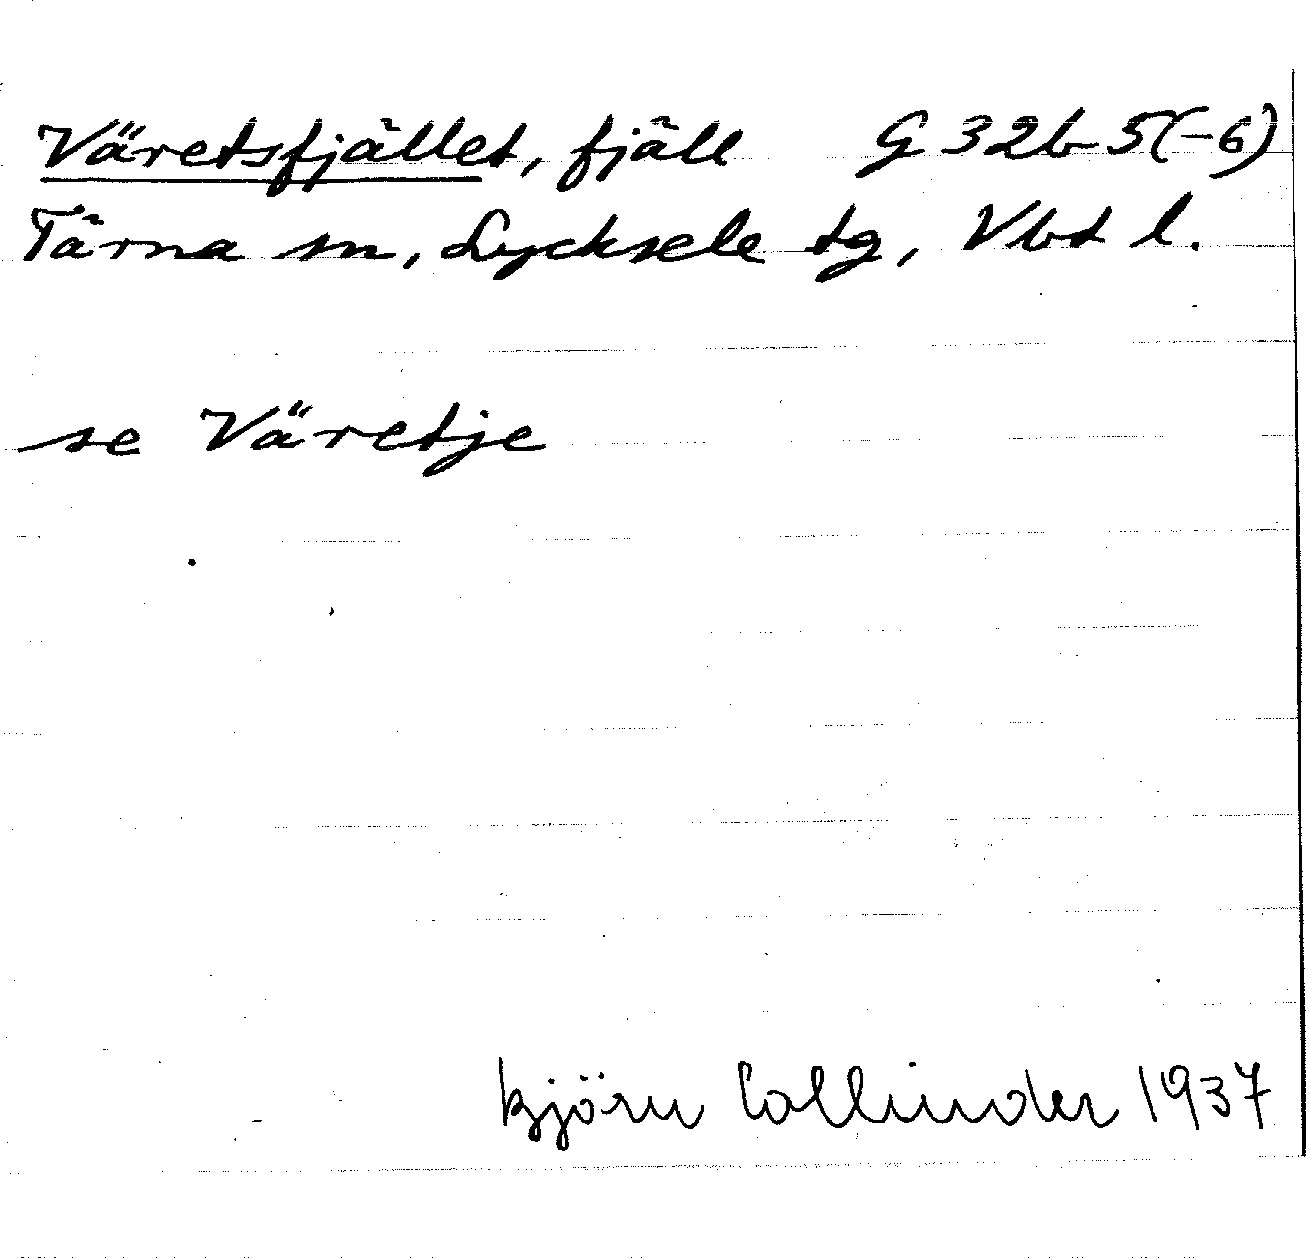 Väretsfjället, fjäll G 32b 5(-6)
Tärna sn, Lycksele tg, Vbt l.
se Väretje
Björn Collinder 1937